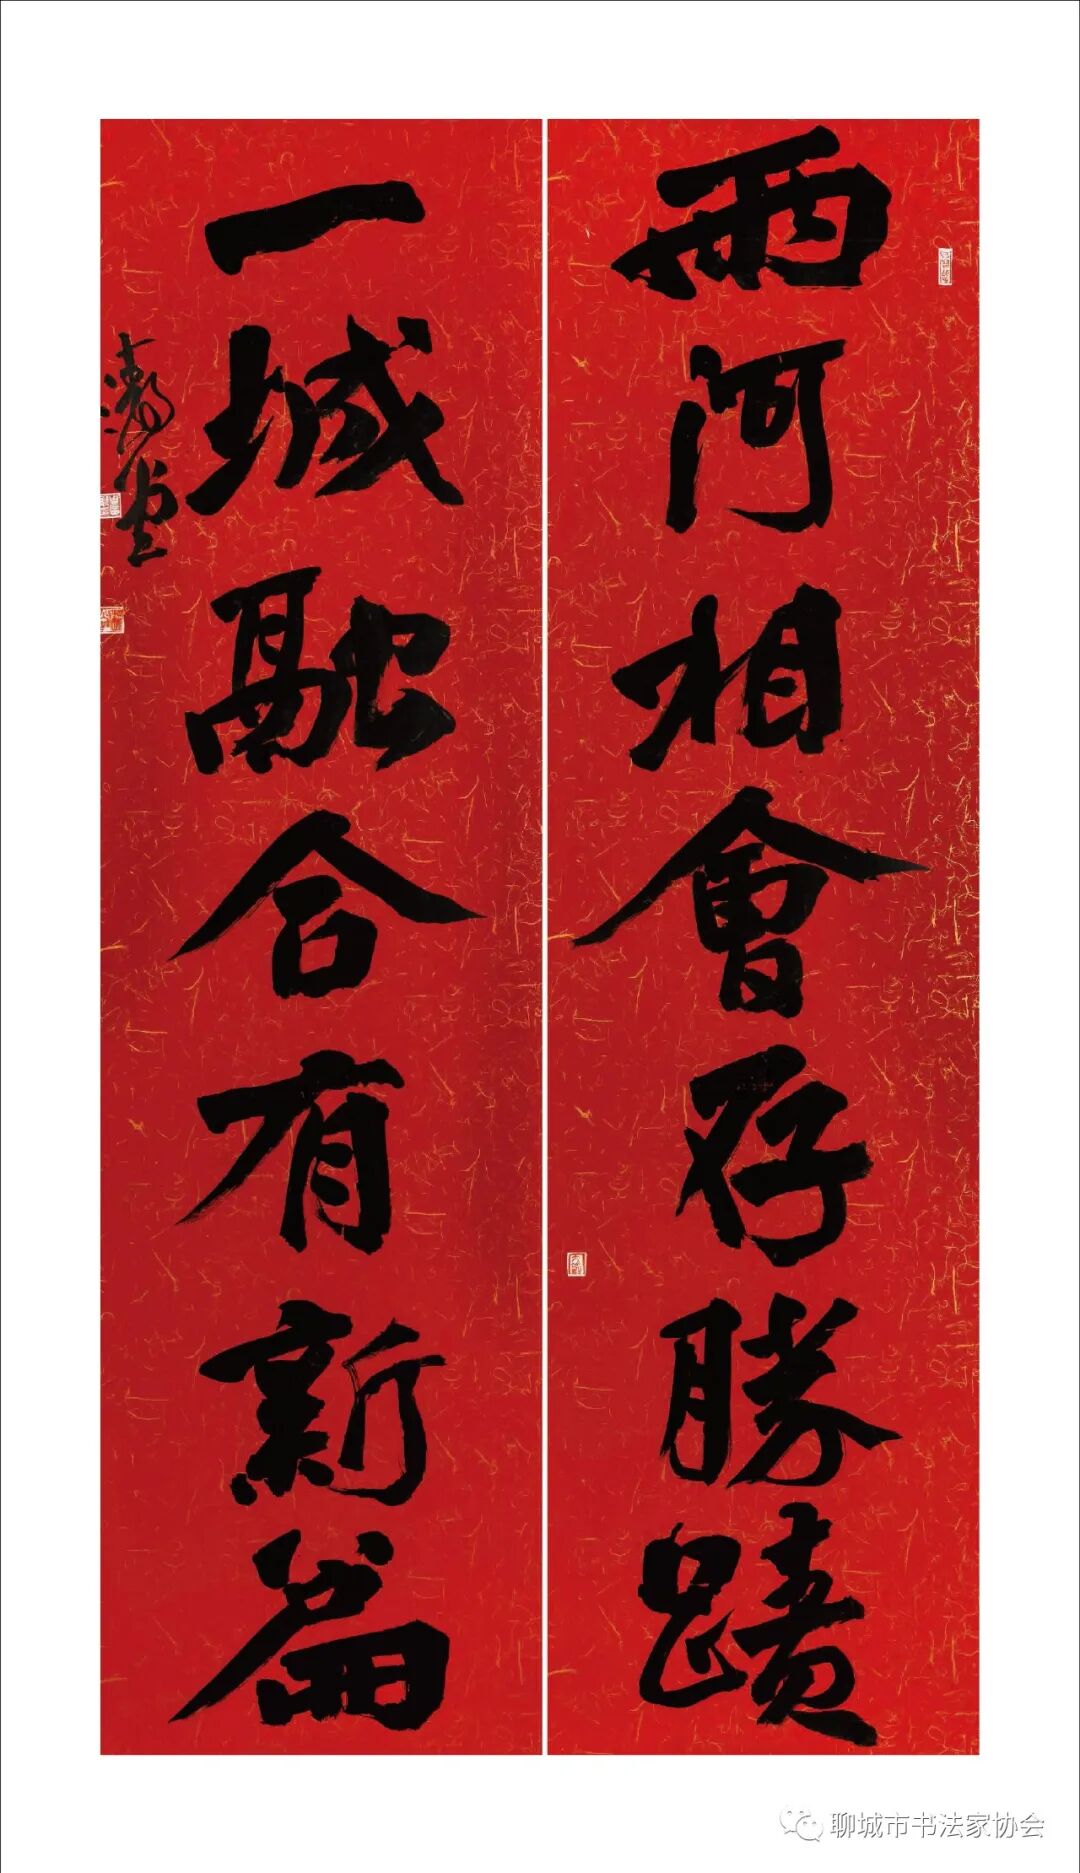 兩河相會存勝蹟
一城融合有新篇
聊城市书法家协会